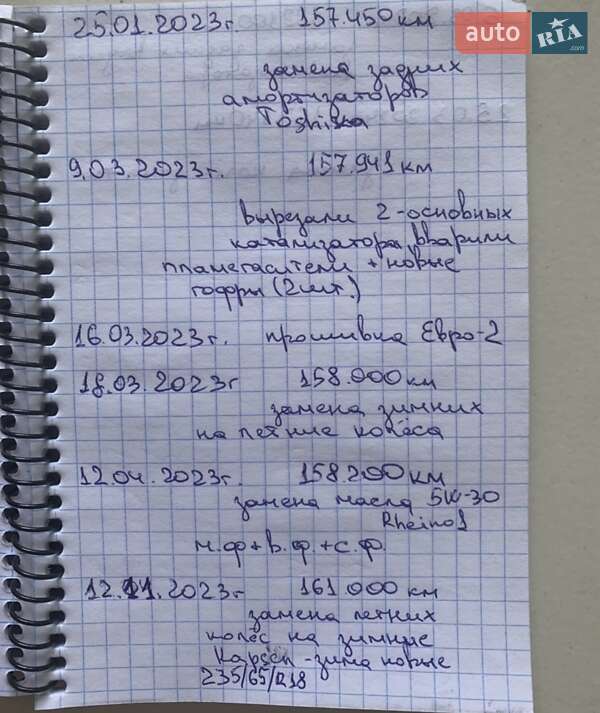 25.01.2023г. 157.450км
auto RIA .com
замена задних
амортизаторов
Toshiska
9.03.2023г. 157.941км
вырезали 2-основных
катализатора, вварили
пламегасители + новые
гофры (2шт.)
16.03.2023г. прошивка Евро-2
18.03.2023г 158.000км
замена зимних
на летние колёса
12.04.2023г. 158.200км
замена масла 5W-30
Rheinol
м.ф+в.ф.+с.ф.
12.11.2023г 161000км
замена летних
колёс на зимние
Kapsen-зима новые
235/65/R18